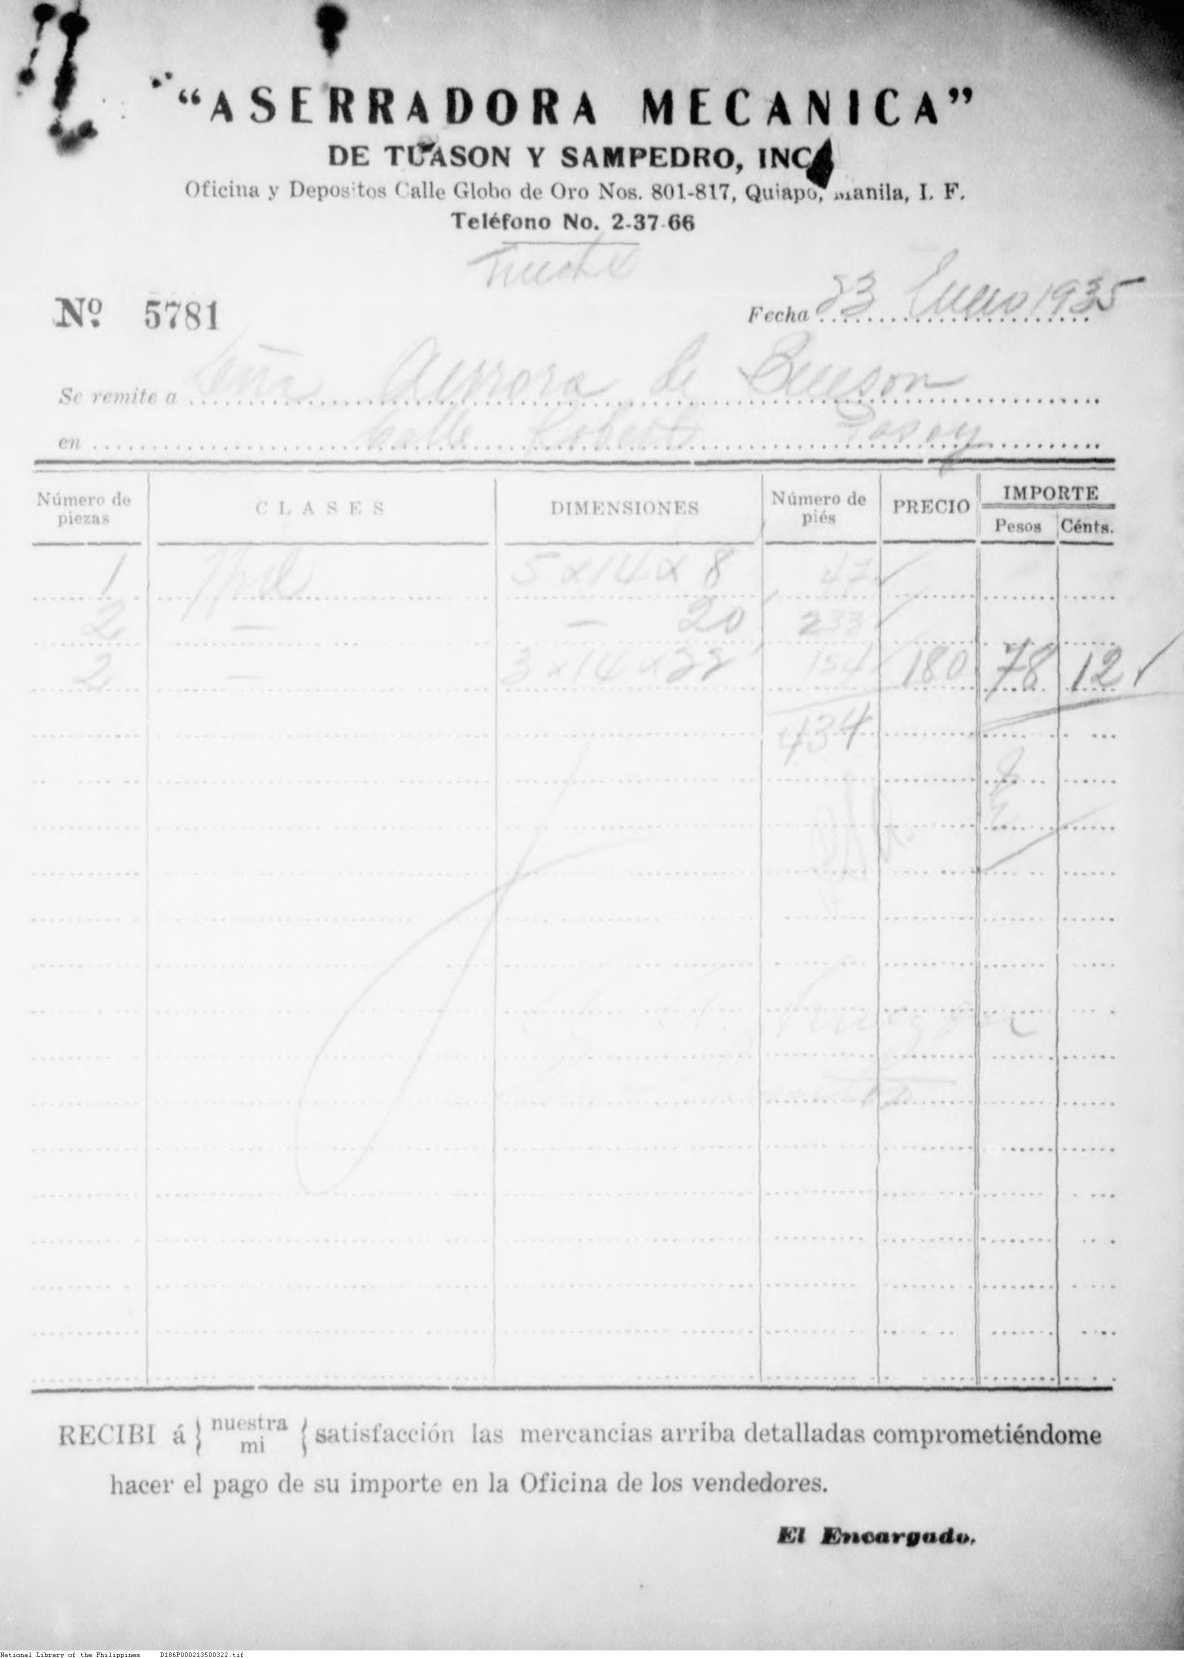 "ASERRADORA MECANICA"
DE TUASON Y SAMPEDRO, INC.
Oficina y Depositos Calle Globo de Oro Nos. 801-817, Quiapo, Manila, I. F.
Teléfono No. 2-37-66
Nº 5781
Fecha 23 Enero 1935
Se remite a Sña Aurora de
en Calle Roberts Pasay
Número de piezas CLASES DIMENSIONES Número de piés PRECIO IMPORTE
Pesos Cénts.
1 5 x 14 x 8' 47
2 — — 20' 233
2 — 3 x 14 x 22' 154 180 78 12
434
RECIBI á } nuestra mi { satisfacción las mercancias arriba detalladas comprometiéndome
hacer el pago de su importe en la Oficina de los vendedores.
El Encargado.
National Library of the Philippines D186P000213500322.tif